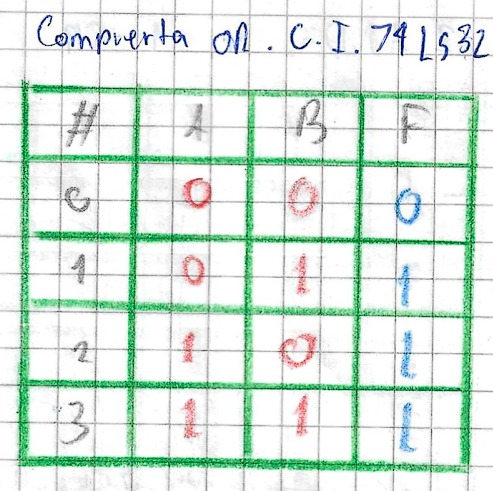 Compuerta OR. C.I. 74LS32
# A B F
0 0 0 0
1 0 1 1
2 1 0 1
3 1 1 1